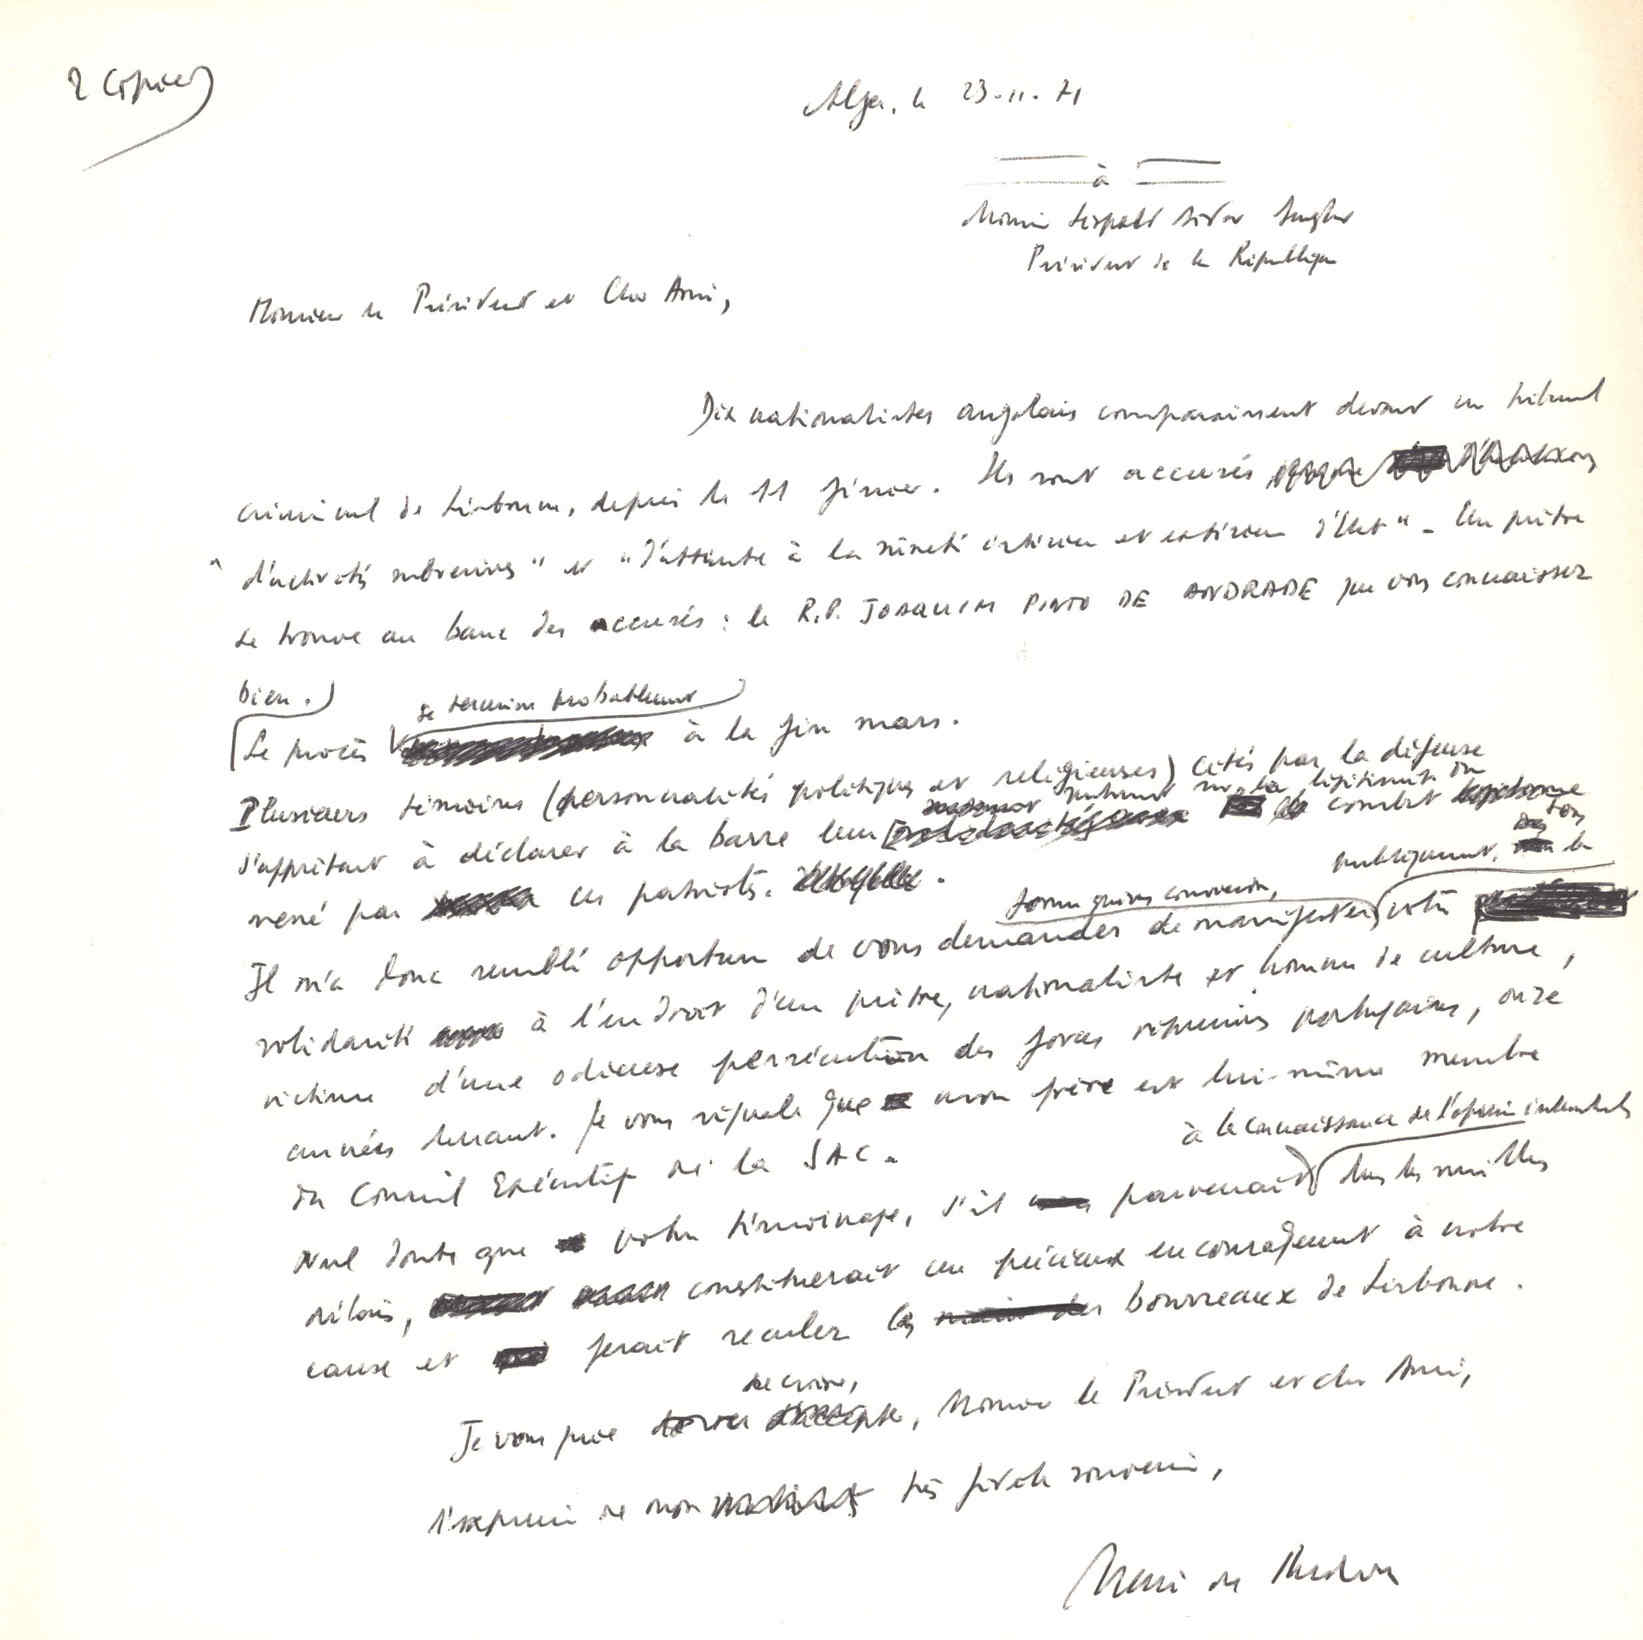 2 copies
Alger, le 23-II-71
à
Monsieur Léopold Sédar Senghor
Président de la République
Monsieur le Président et Cher Ami,
Dix nationalistes angolais comparaissent devant un tribunal
criminel de Lisbonne, depuis le 11 février. Ils sont accusés
"d'activités subversives" et "d'atteinte à la sûreté intérieure et extérieure d'Etat" - Un prêtre
se trouve au banc des accusés : le R.P. JOAQUIM PINTO DE ANDRADE que vous connaissez
bien.
se terminera probablement
Le procès à la fin mars.
Plusieurs témoins (personnalités politiques et religieuses) cités par la défense
sur la légitimité du
s'apprêtent à déclarer à la barre leur combat
mené par ces patriotes.
sous forme qui vous conviendra, publiquement, la
Il m'a donc semblé opportun de vous demander de manifester votre
solidarité à l'endroit d'un prêtre, nationaliste et homme de culture,
victime d'une odieuse persécution des forces répressives portugaises, onze
années durant. Je vous signale que mon frère est lui-même membre
du Conseil Exécutif de la SAC.
à la connaissance de l'opinion internationale
Nul doute que votre témoignage, s'il parvenait dans les meilleurs
délais, constituerait un précieux encouragement à notre
cause et ferait reculer les bourreaux de Lisbonne.
de croire,
Je vous prie , Monsieur le Président et cher Ami,
l'expression de mon très fidèle souvenir,
Mário de Andrade